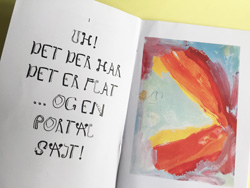 UH!
DET DER HAR
DET ER FLAT
... OG EN
PORTAL